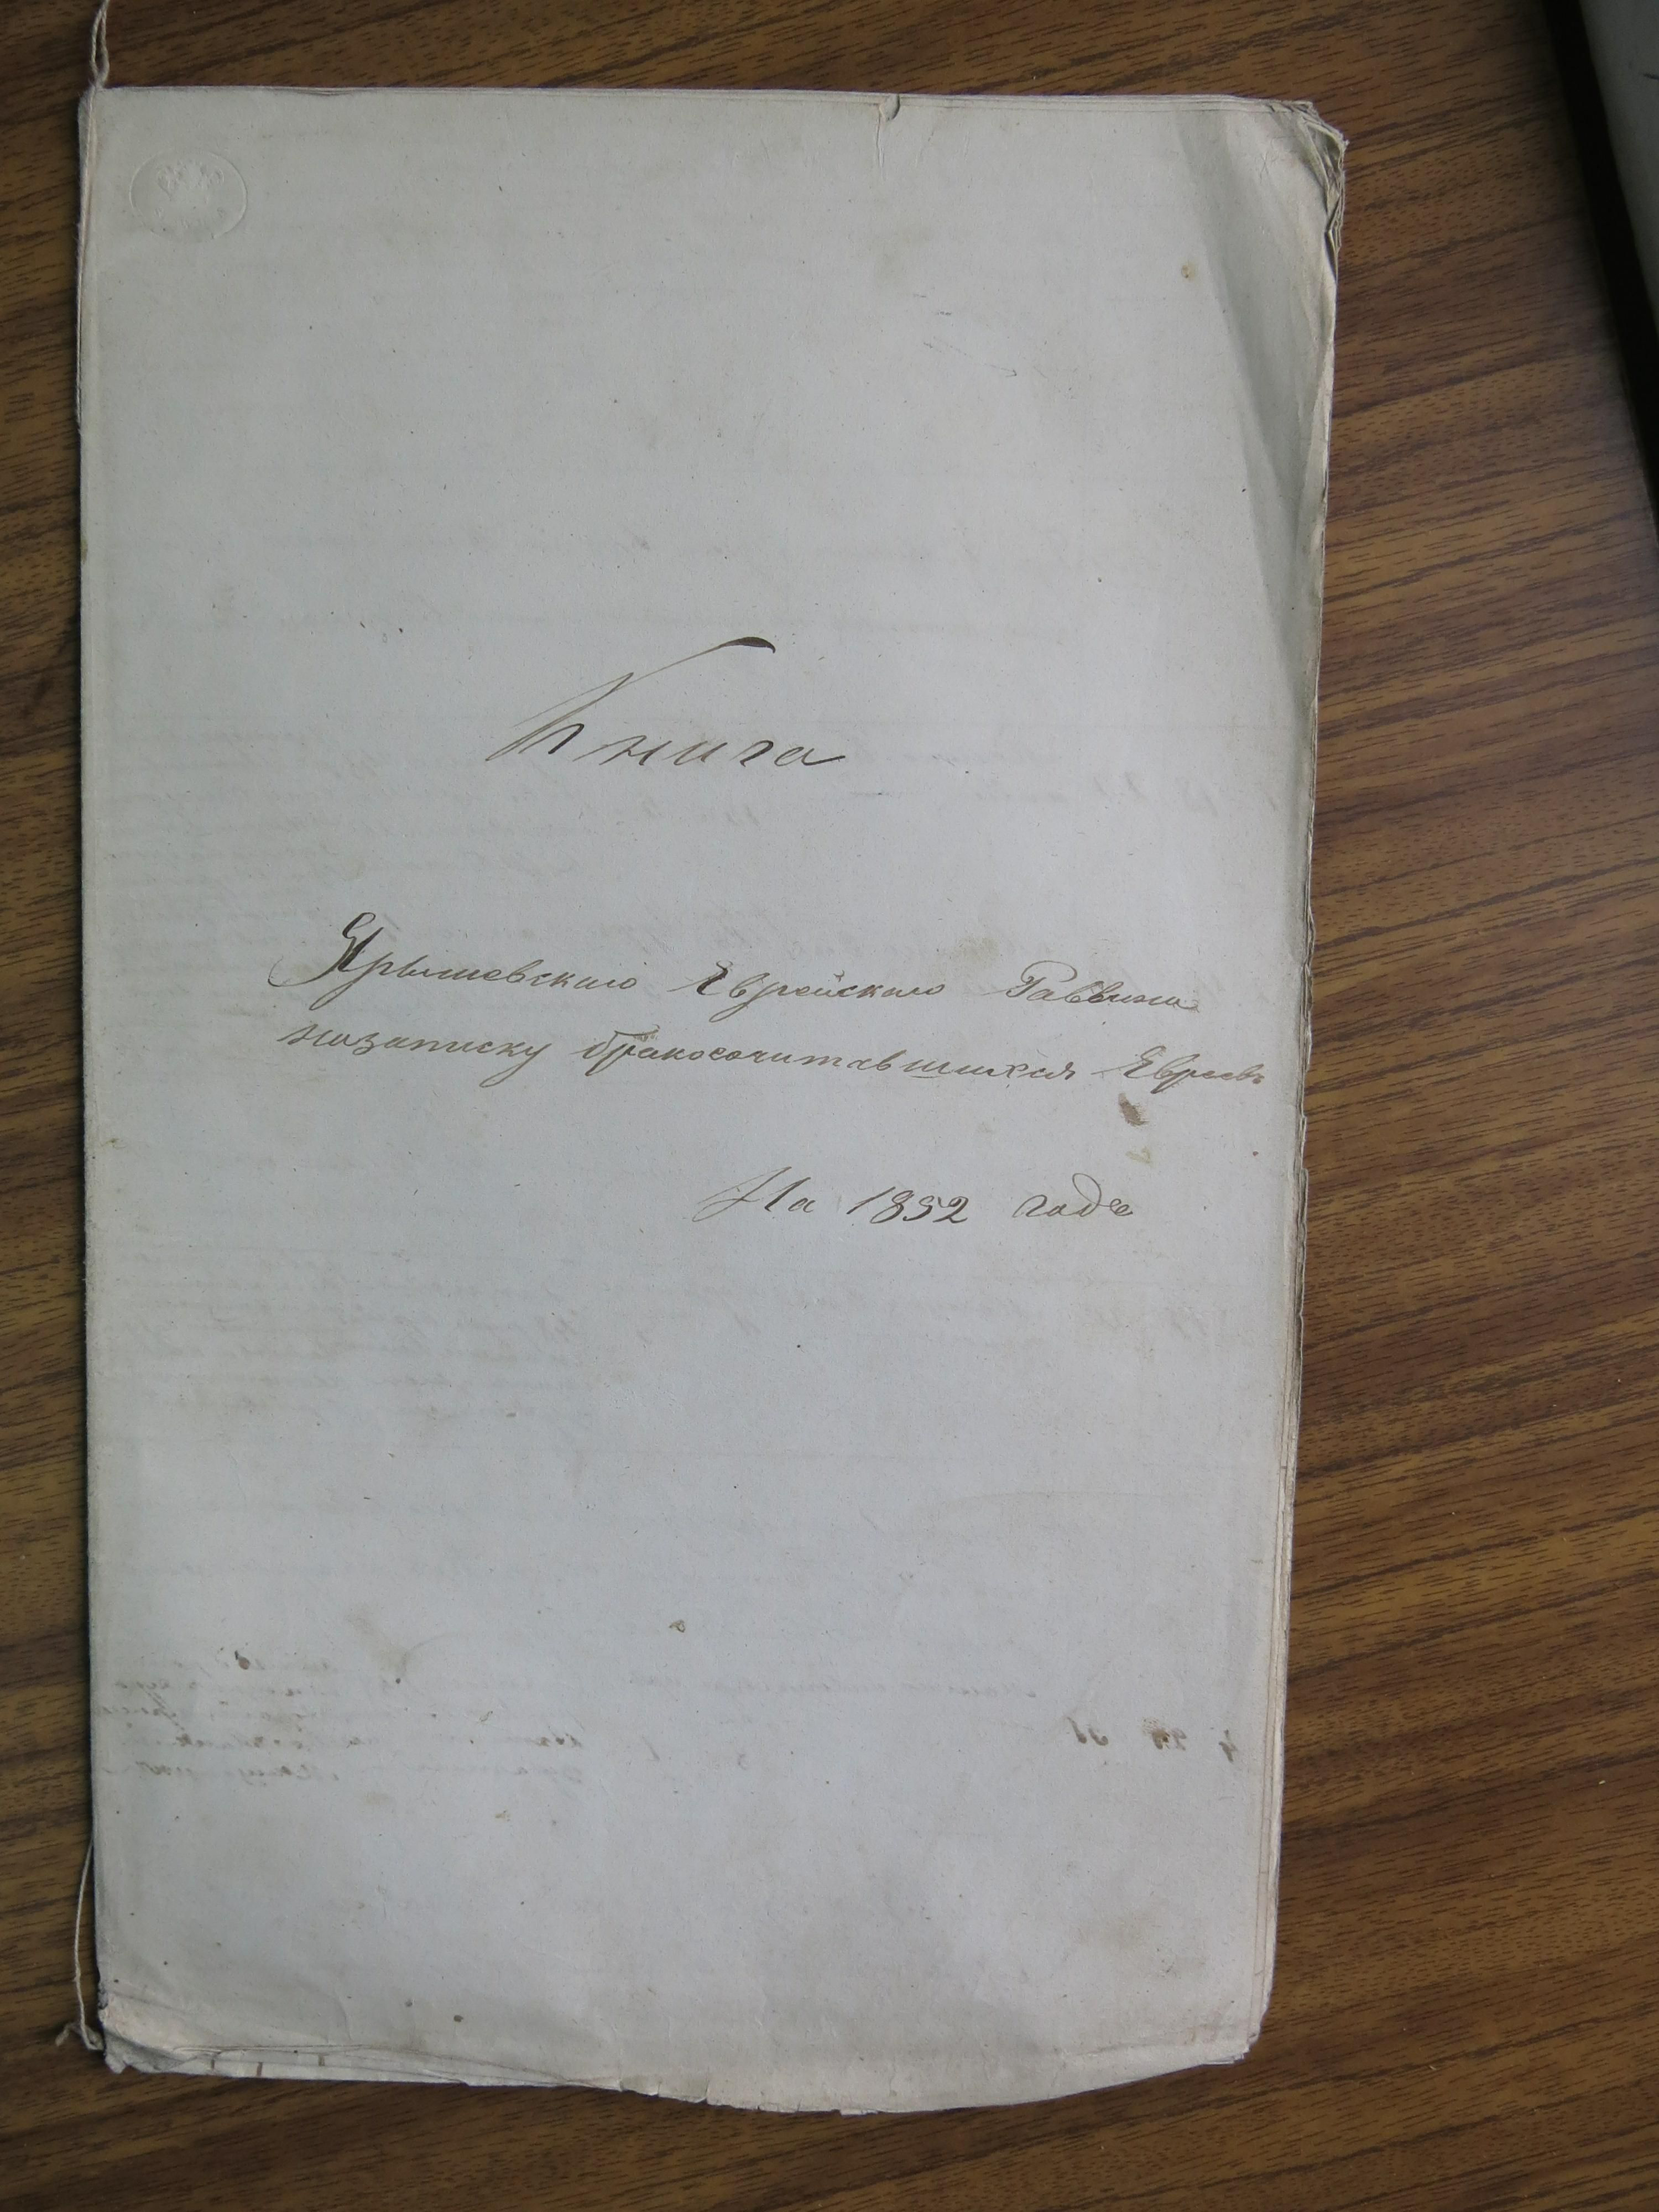 Книга
Ярышевскаго Еврейскаго Раввина
назаписку бракосочитавшихся Евреевъ
На 1852 годъ